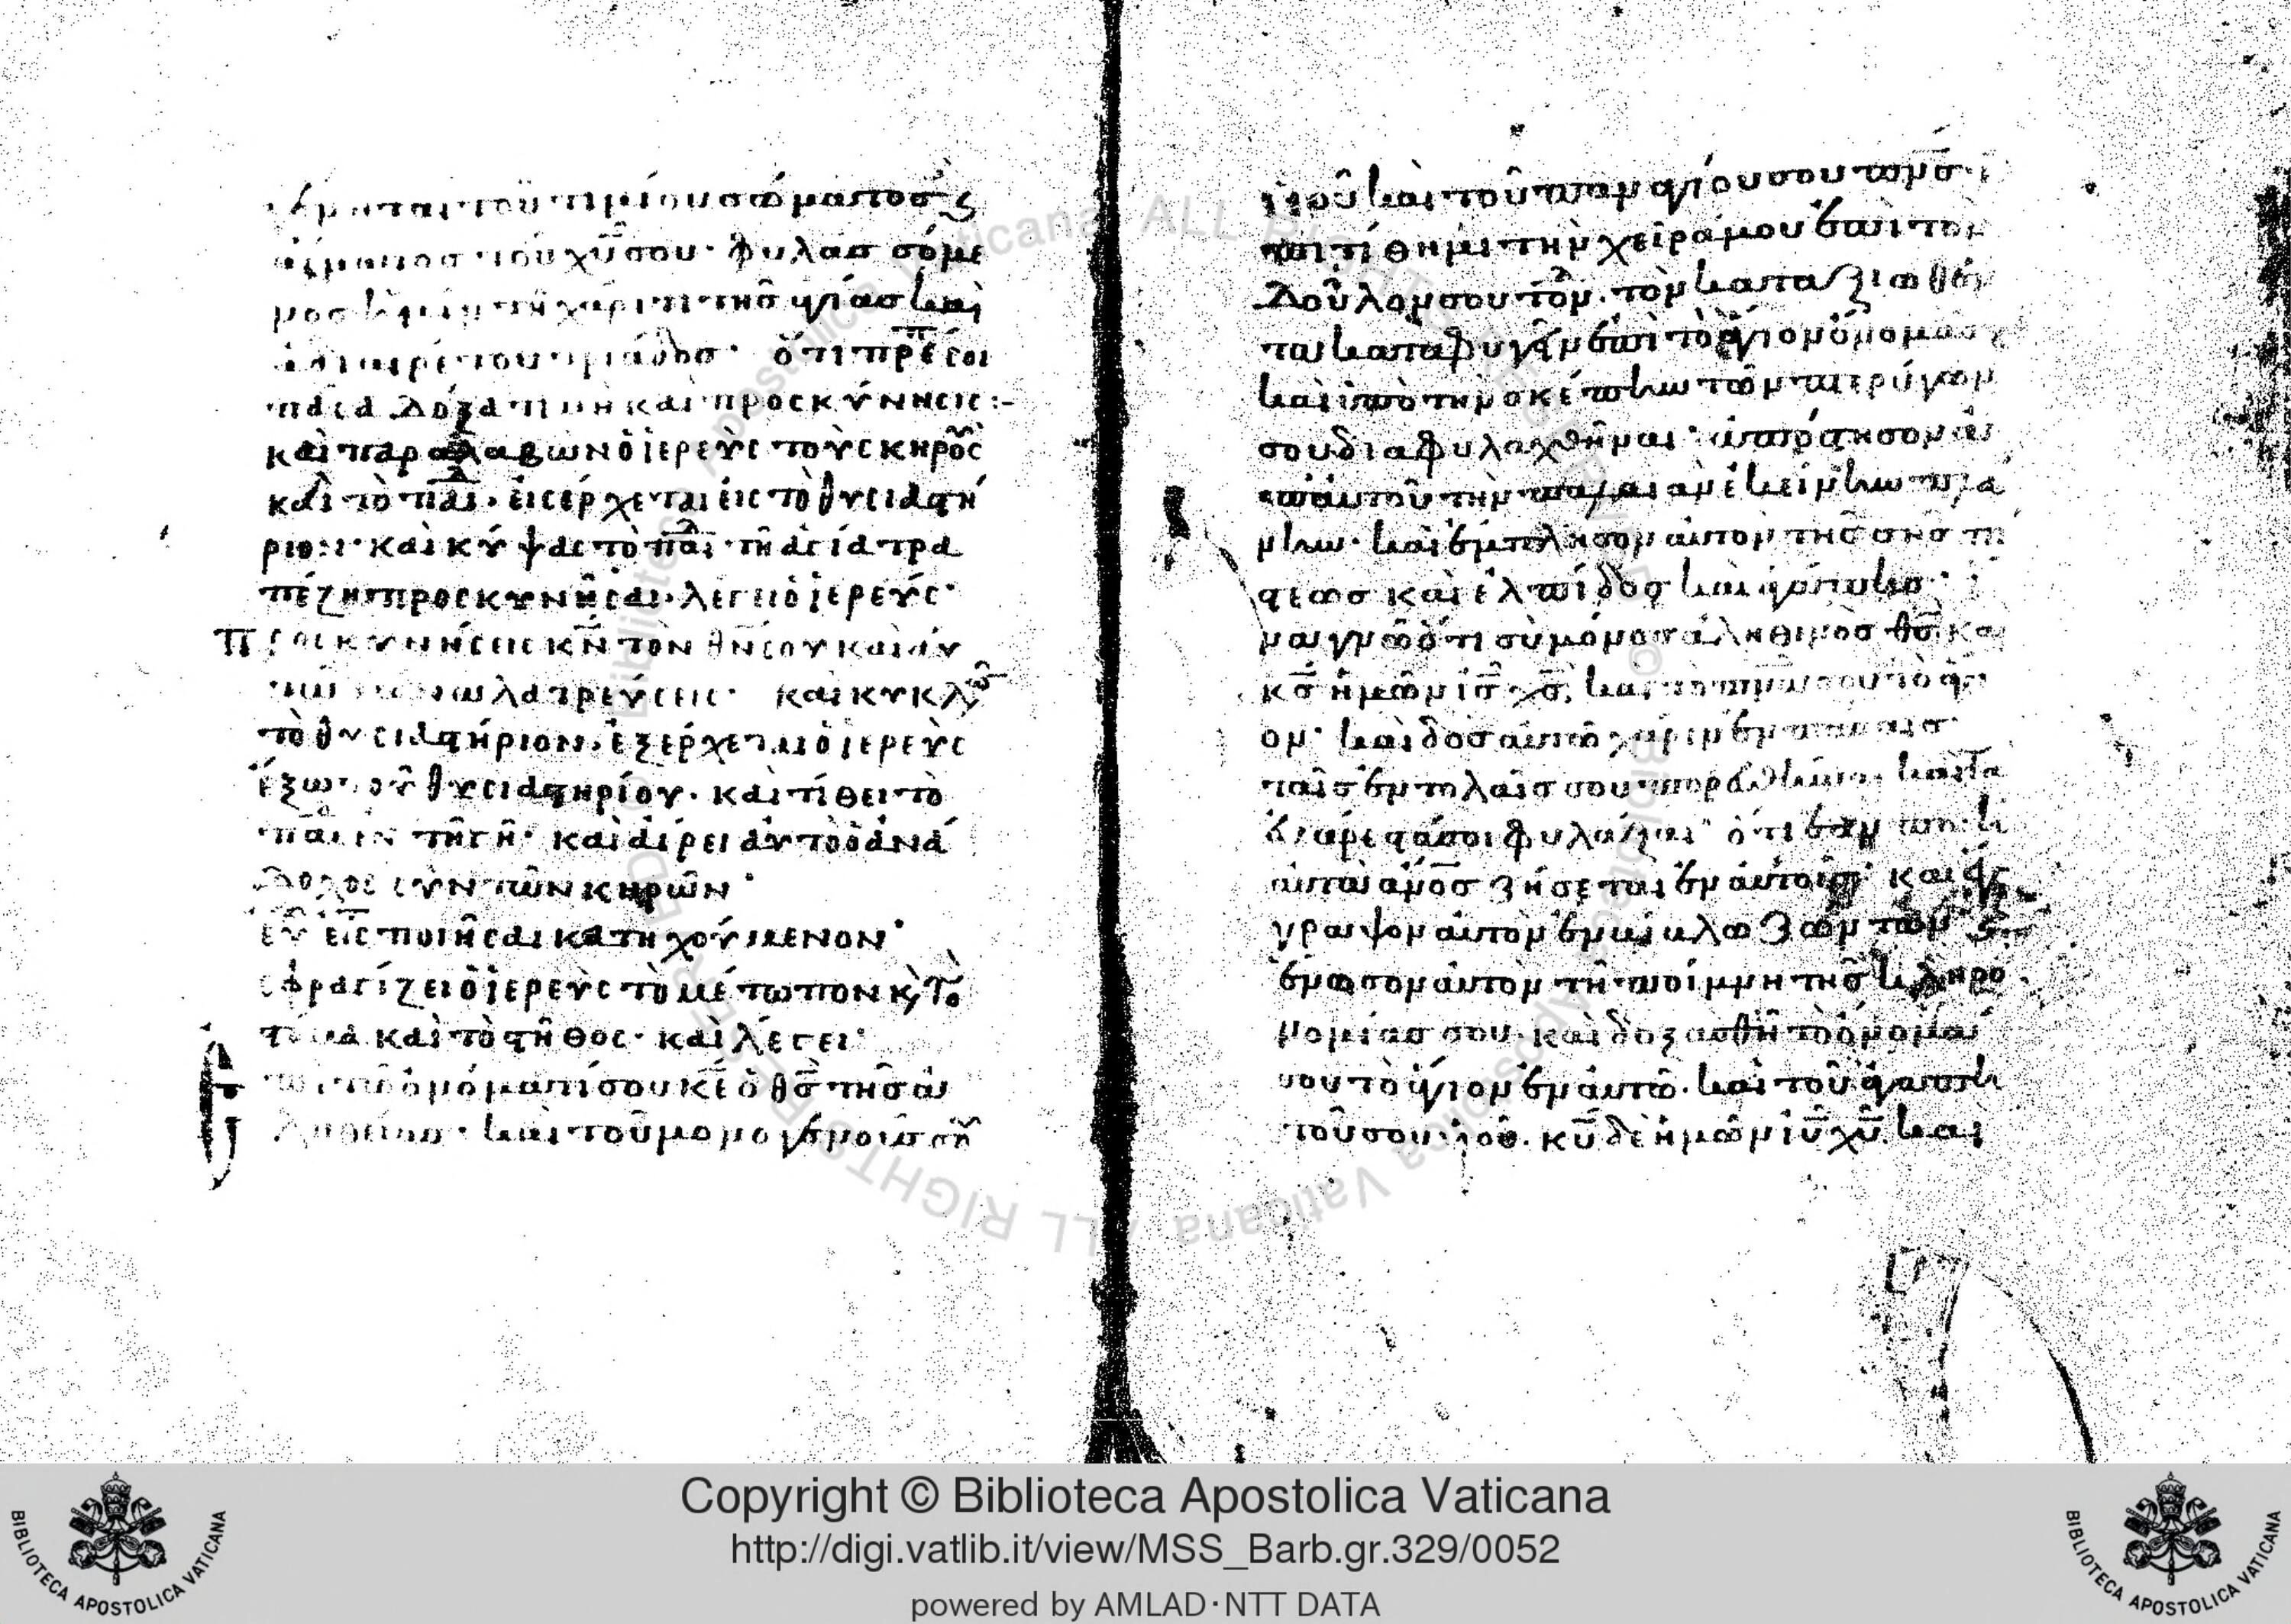 τοῦ τιμίου σώματος ϛ
αἵματος τοῦ χυ σου· φυλασσόμε
νος ἐν τῇ χάριτι τῆς ἁγίας καὶ
τριάδος· ὅτι πρέ σοι
πᾶσα δόξα τιμὴ καὶ προσκύνησις:-
καὶ παραλαβὼν ὁ ἱερεὺς τοὺς κηροὺς
καὶ τὸ παι· εἰσέρχεται εἰς τὸ θυσιαστή
ριον· καὶ κύψας τὸ παι τῇ ἁγία τρα
πέζη προσκυνῆσαι· λέγει ὁ ἱερεύς·
Προσκυνήσεις κν τὸν θν σου καὶ αὐ
τῷ μόνω λατρεύσεις· καὶ κυκλῶ
τὸ θυσιαστήριον· ἐξέρχεται ὁ ἱερεὺς
ἔξω τοῦ θυσιαστηρίου· καὶ τίθει τὸ
παι ἐν τῇ γῇ· καὶ αἴρει αὐτὸ ὁ ἀνά
δοχος σὺν τῶν κηρῶν·
εὐ εἰς ποιῆσαι κατηχούμενον·
σφραγίζει ὁ ἱερεὺς τὸ μέτωπον κ το
στόμα καὶ τὸ στῆθος· καὶ λέγει·
Ἐπὶ τῶ ὀνόματί σου κε ὁ θς τῆς ἀ
ληθείας· καὶ τοῦ μονογενοῦς σου
υἱοῦ καὶ τοῦ παναγίου σου πνς·
ἐπιτίθημι τὴν χεῖρά μου ἐπὶ τὸν
δοῦλον σου τόν· τὸν καταξιωθέν
τα καταφυγεῖν ἐπὶ τὸ ἅγιον ὄνομά σου
καὶ ὑπὸ τὴν σκέπην τῶν πτερύγων
σου διαφυλαχθῆναι· ἀπόστησον ἀπ
ἀπ αὐτοῦ τὴν παλαιὰν ἐκείνην πλά
νην· καὶ ἔμπλησον αὐτὸν τῆς σῆς πί
στεως καὶ ἐλπίδος καὶ ἀγάπης· ἵ
να γνῶ ὅτι σὺ μόνος ἀληθινὸς θς· καὶ
κς ἡμῶν ις χς, καὶ τὸ πνα σου τὸ ἅγι
ον· καὶ δὸς αὐτῶ χάριν ἐν πάσαις
ταῖς ἐντολαῖς σου πορευθῆναι· καὶ τὰ
εὐάρεστά σοι φυλάξαι· ὅτι ἐὰν ποι
αὐτὰ ανος ζήσεται ἐν αὐτοῖς· κατά
γραψον αὐτὸν ἐν βίβλω ζωῆς σου ϛ
ἕνωσον αὐτὸν τῇ ποίμνη τῆς κληρο
νομίας σου· καὶ δοξασθῇ τὸ ὄνομά
σου τὸ ἅγιον ἐν αὐτῶ· καὶ τοῦ ἀγαπη
τοῦ σου υἱοῦ· κυ δὲ ἡμῶν ιυ χυ· καὶ
Copyright © Biblioteca Apostolica Vaticana
http://digi.vatlib.it/view/MSS_Barb.gr.329/0052
powered by AMLAD·NTT DATA
BIBLIOTECA APOSTOLICA VATICANA
BIBLIOTECA APOSTOLICA VATICANA